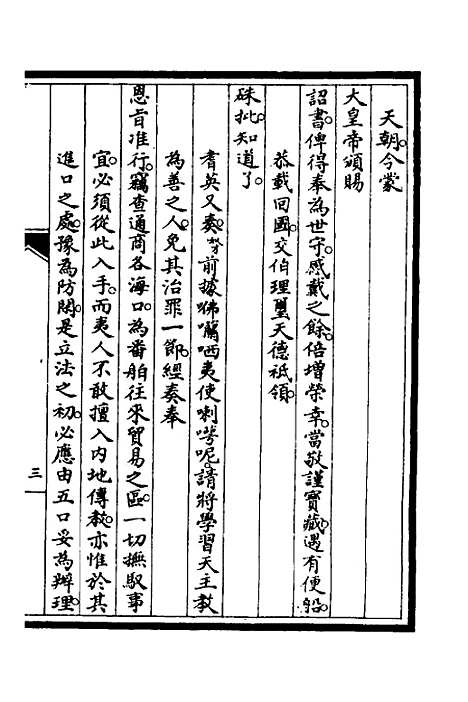 天朝今蒙
大皇帝頒賜
詔書俾得奉為世守感戴之餘倍增榮幸當敬謹寶藏遇有便船
恭載回國交伯理璽天德祇領
硃批知道了
耆英又奏竊前據咈囒哂夷使喇噻呢請將學習天主教
為善之人免其治罪一節經奏奉
恩旨准行竊查通商各海口為番舶往來貿易之區一切撫馭事
宜必須從此入手而夷人不敢擅入內地傳教亦惟於其
進口之處豫為防閑是立法之初必應由五口妥為辦理
三